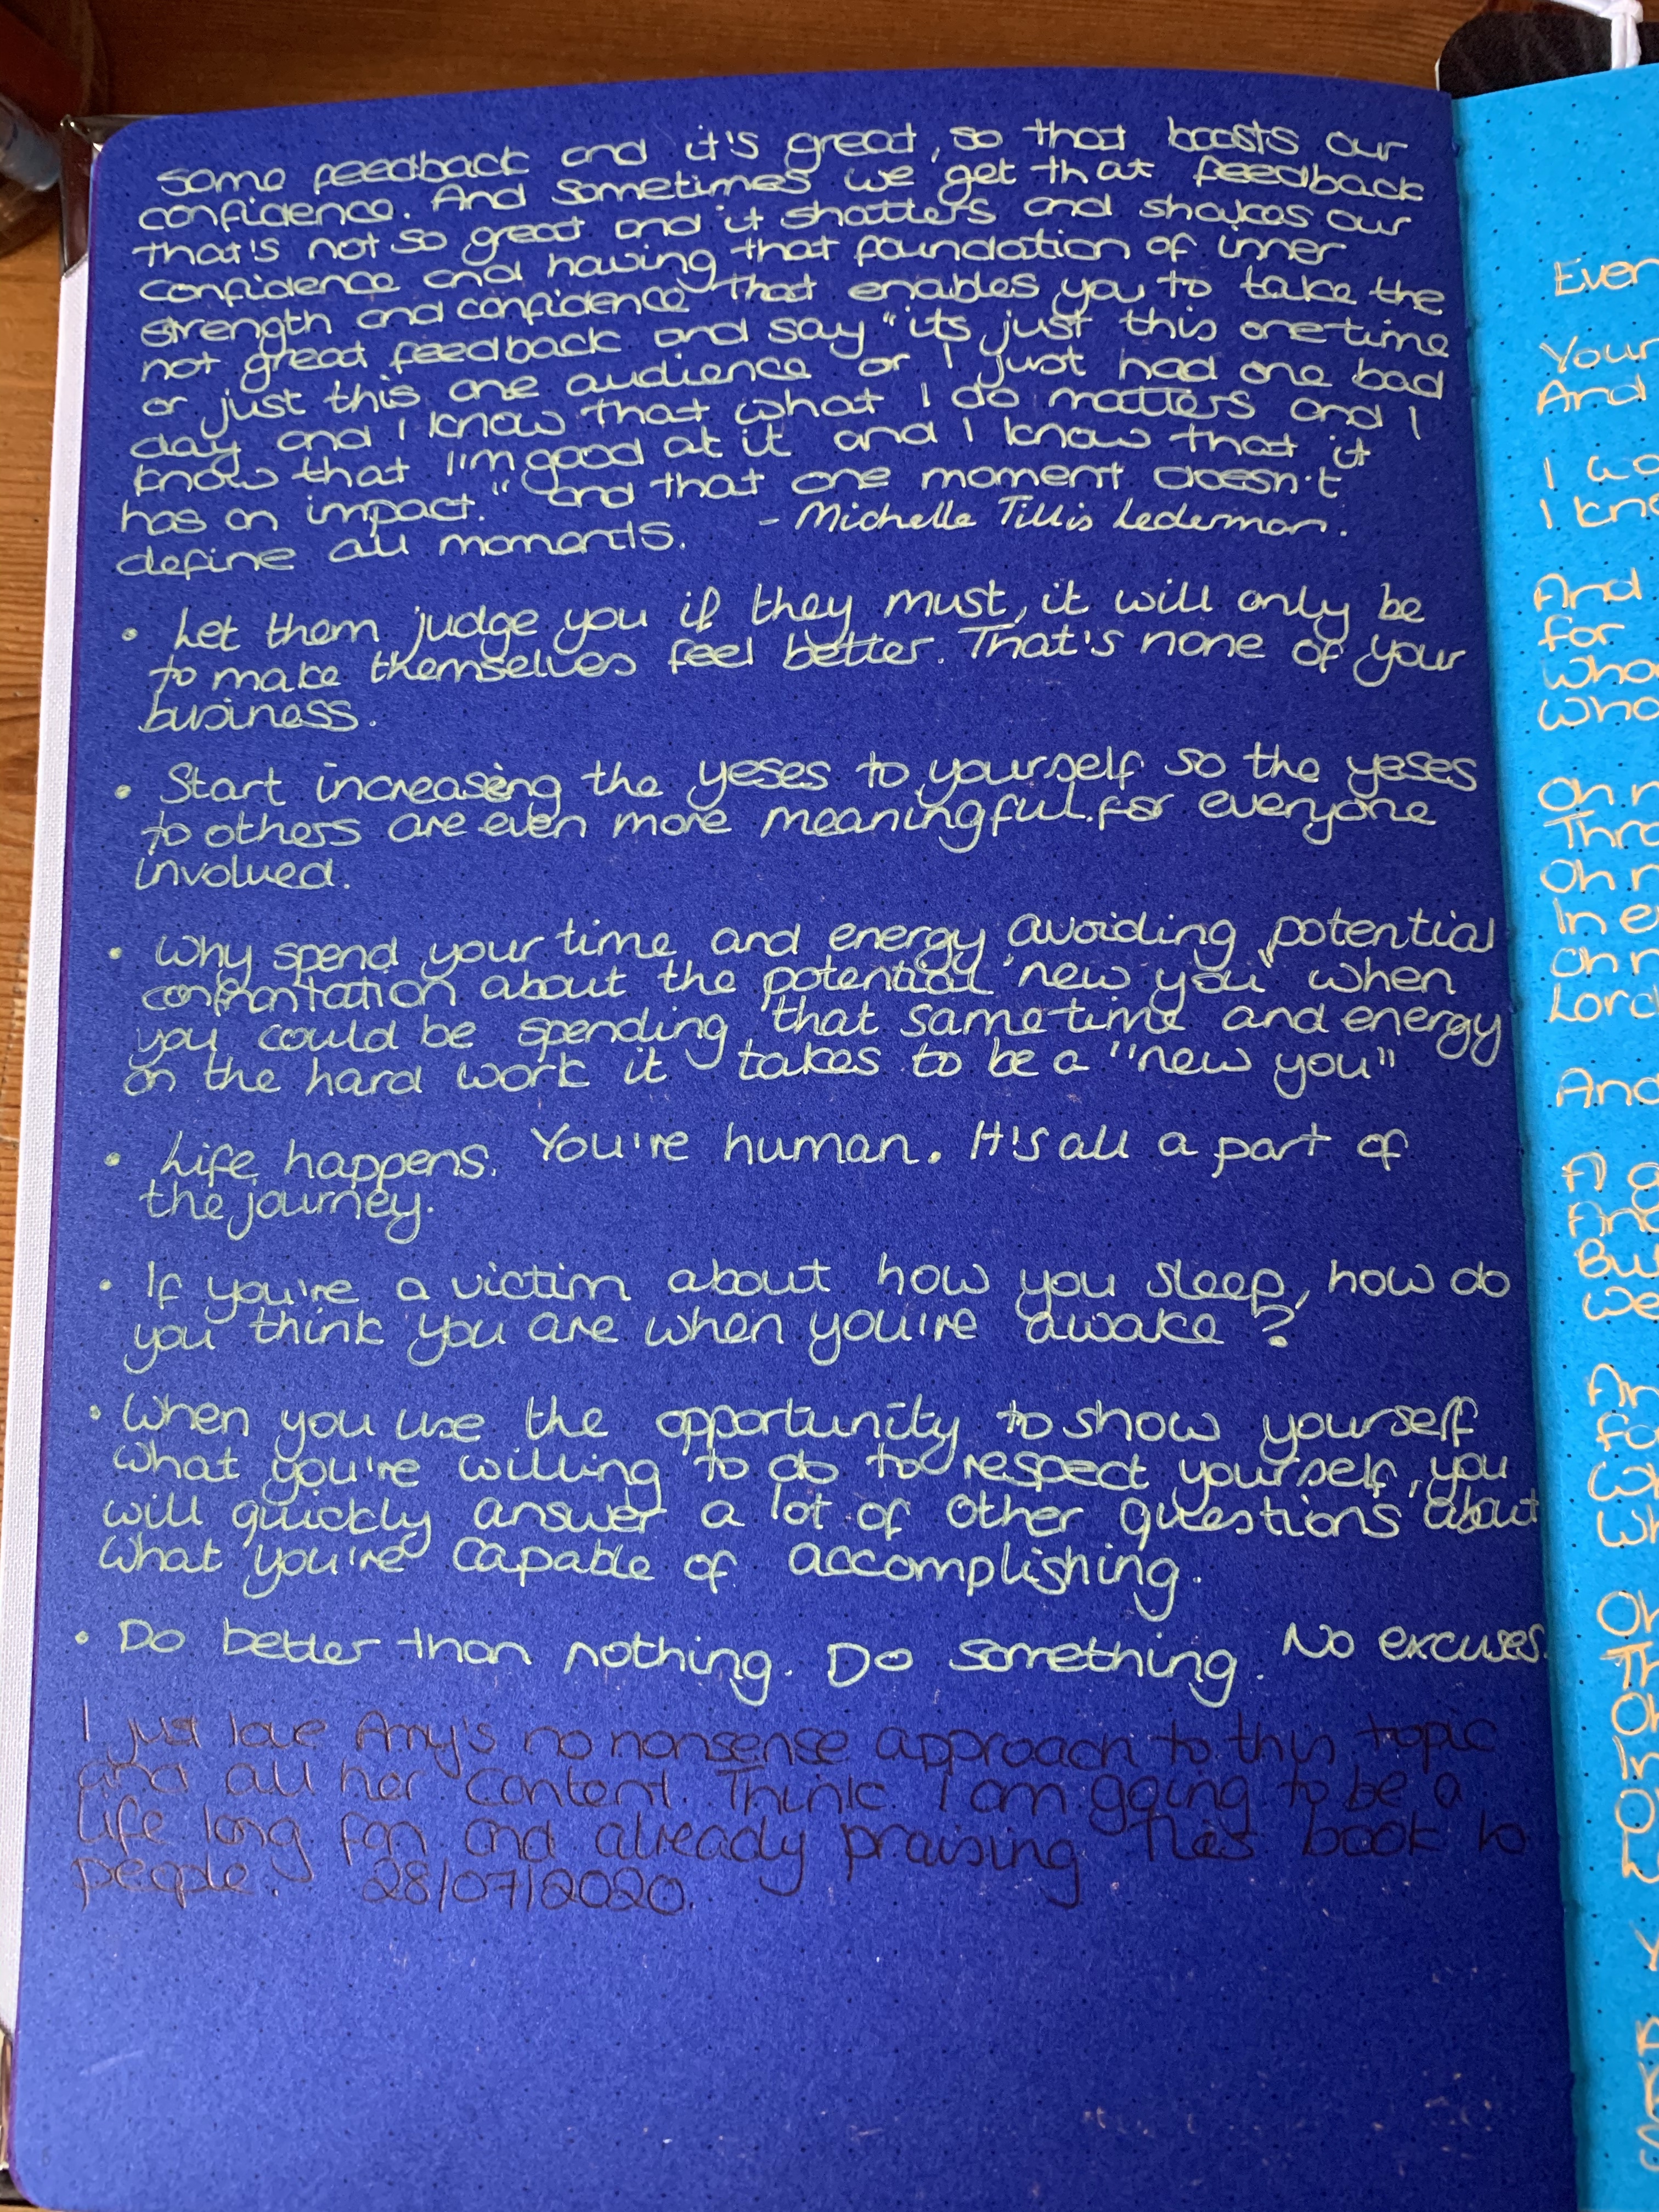 some feedback and it's great, so that boosts our
confidence. And sometimes we get that feedback
that's not so great and it shatters and shakes our
confidence and having that foundation of inner
strength and confidence that enables you to take the
not great feedback and say "its just this one time
or just this one audience or I just had one bad
day and I know that what I do matters and I
know that I'm good at it and I know that it
has an impact." and that one moment doesn't
define all moments. - Michelle Tillis Lederman.
• Let them judge you if they must, it will only be
to make themselves feel better. That's none of your
business.
• Start increasing the yeses to yourself so the yeses
to others are even more meaningful for everyone
involved.
• Why spend your time and energy avoiding potential
confrontation about the potential 'new you' when
you could be spending that same time and energy
on the hard work it takes to be a "new you"
• Life happens. You're human. It's all a part of
the journey.
• If you're a victim about how you sleep, how do
you think you are when you're awake?
• When you use the opportunity to show yourself
what you're willing to do to respect yourself, you
will quickly answer a lot of other questions about
what you're capable of accomplishing.
• Do better than nothing. Do something. No excuses.
I just love Amy's no nonsense approach to this topic
and all her content. Think I am going to be a
life long fan and already praising her book to
people. 28/07/2020.
Your
And
And
for
Oh
In
Lord
And
But
we